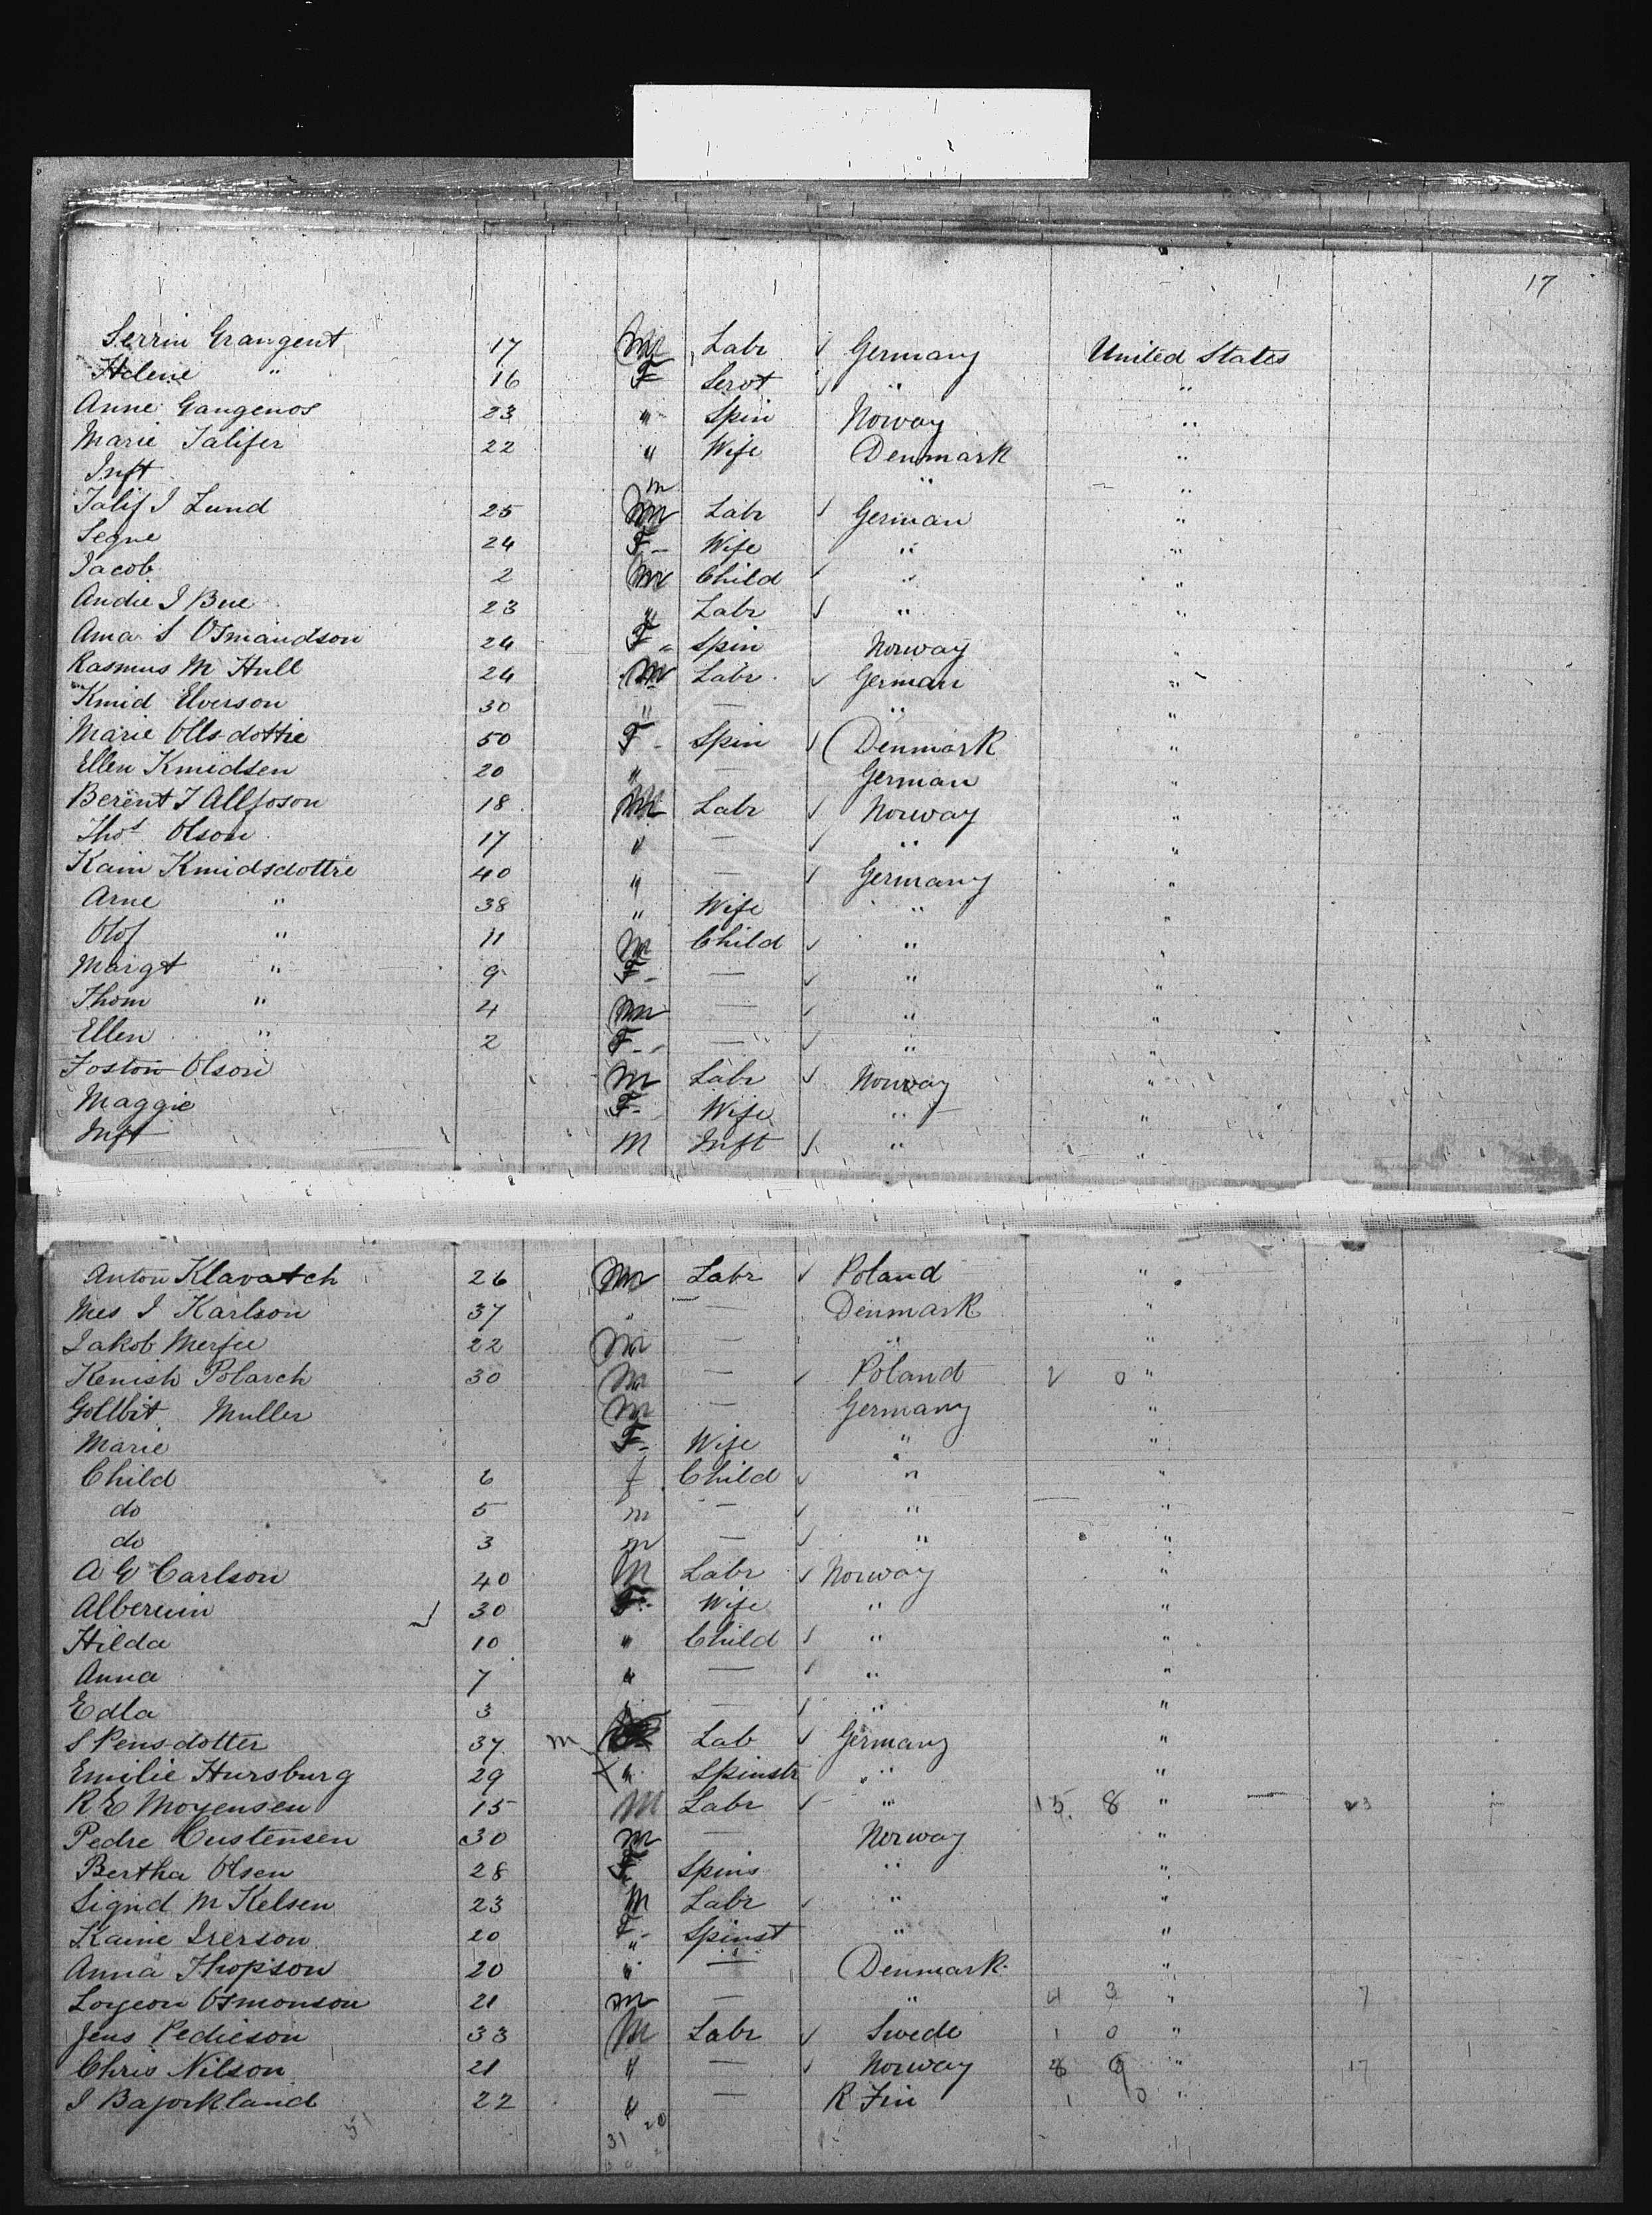 17
Serrin Grangent 17 M Labr ✓ Germany United States
Helene " 16 F Servt ✓ " "
Anne Gangenos 23 " Spin Norway "
Marie Talifer 22 " Wife Denmark "
Inft m " "
Talif J Lund 25 M Labr ✓ German "
Segne 24 F Wife " "
Jacob 2 M Child ✓ " "
Andie J Bue 23 " Labr ✓ " "
Ama S Osmandson 24 F Spin Norway "
Rasmus M Hull 24 M Labr ✓ German "
Knid Elverson 30 " — " "
Marie Ollsdottie 50 F Spin ✓ Denmark "
Ellen Knidsen 20 " — German "
Berent T Allfoson 18 M Labr ✓ Norway "
Thos Olson 17 " — ✓ " "
Kain Knidsdottre 40 " — ✓ Germany "
Arne " 38 " Wife " "
Olof " 11 M Child ✓ " "
Margt " 9 F — ✓ " "
Thom " 4 M — ✓ " "
Ellen " 2 F — ✓ " "
Foston Olson M Labr ✓ Norway "
Maggie F Wife " "
Inft M Inft ✓ " "
Anton Klavatch 26 M Labr ✓ Poland "
Mes J Karlson 37 " — Denmark "
Jakob Merfee 22 M — " "
Kenish Polarch 30 M — ✓ Poland 2 0 "
Gollbit Muller M — Germany "
Marie F Wife " "
Child 6 f Child ✓ " "
do 5 m — ✓ " "
do 3 m — ✓ " "
A G Carlson 40 M Labr ✓ Norway "
Alberuin 30 F Wife " "
Hilda 10 " Child ✓ " "
Anna 7 " — ✓ " "
Edla 3 " — ✓ " "
S Pensdotter 37 m Lab ✓ Germany "
Emilie Hursburg 29 " Spinstr " "
R E Moyensen 15 M Labr ✓ " 15 8 " 23
Pedre Custensen 30 M — Norway "
Bertha Olsen 28 F Spins " "
Signd M Kelsen 23 M Labr ✓ " "
Kaine Irerson 20 F Spinst " "
Anna Thopson 20 " — Denmark "
Loyeon Osmonson 21 m — " 4 3 " 7
Jens Pedieson 33 M Labr ✓ Swede 1 0 "
Chris Nilson 21 " — ✓ Norway 8 9 " 17
J Bajorkland 22 " — R Fin 1 0 "
51 31 20